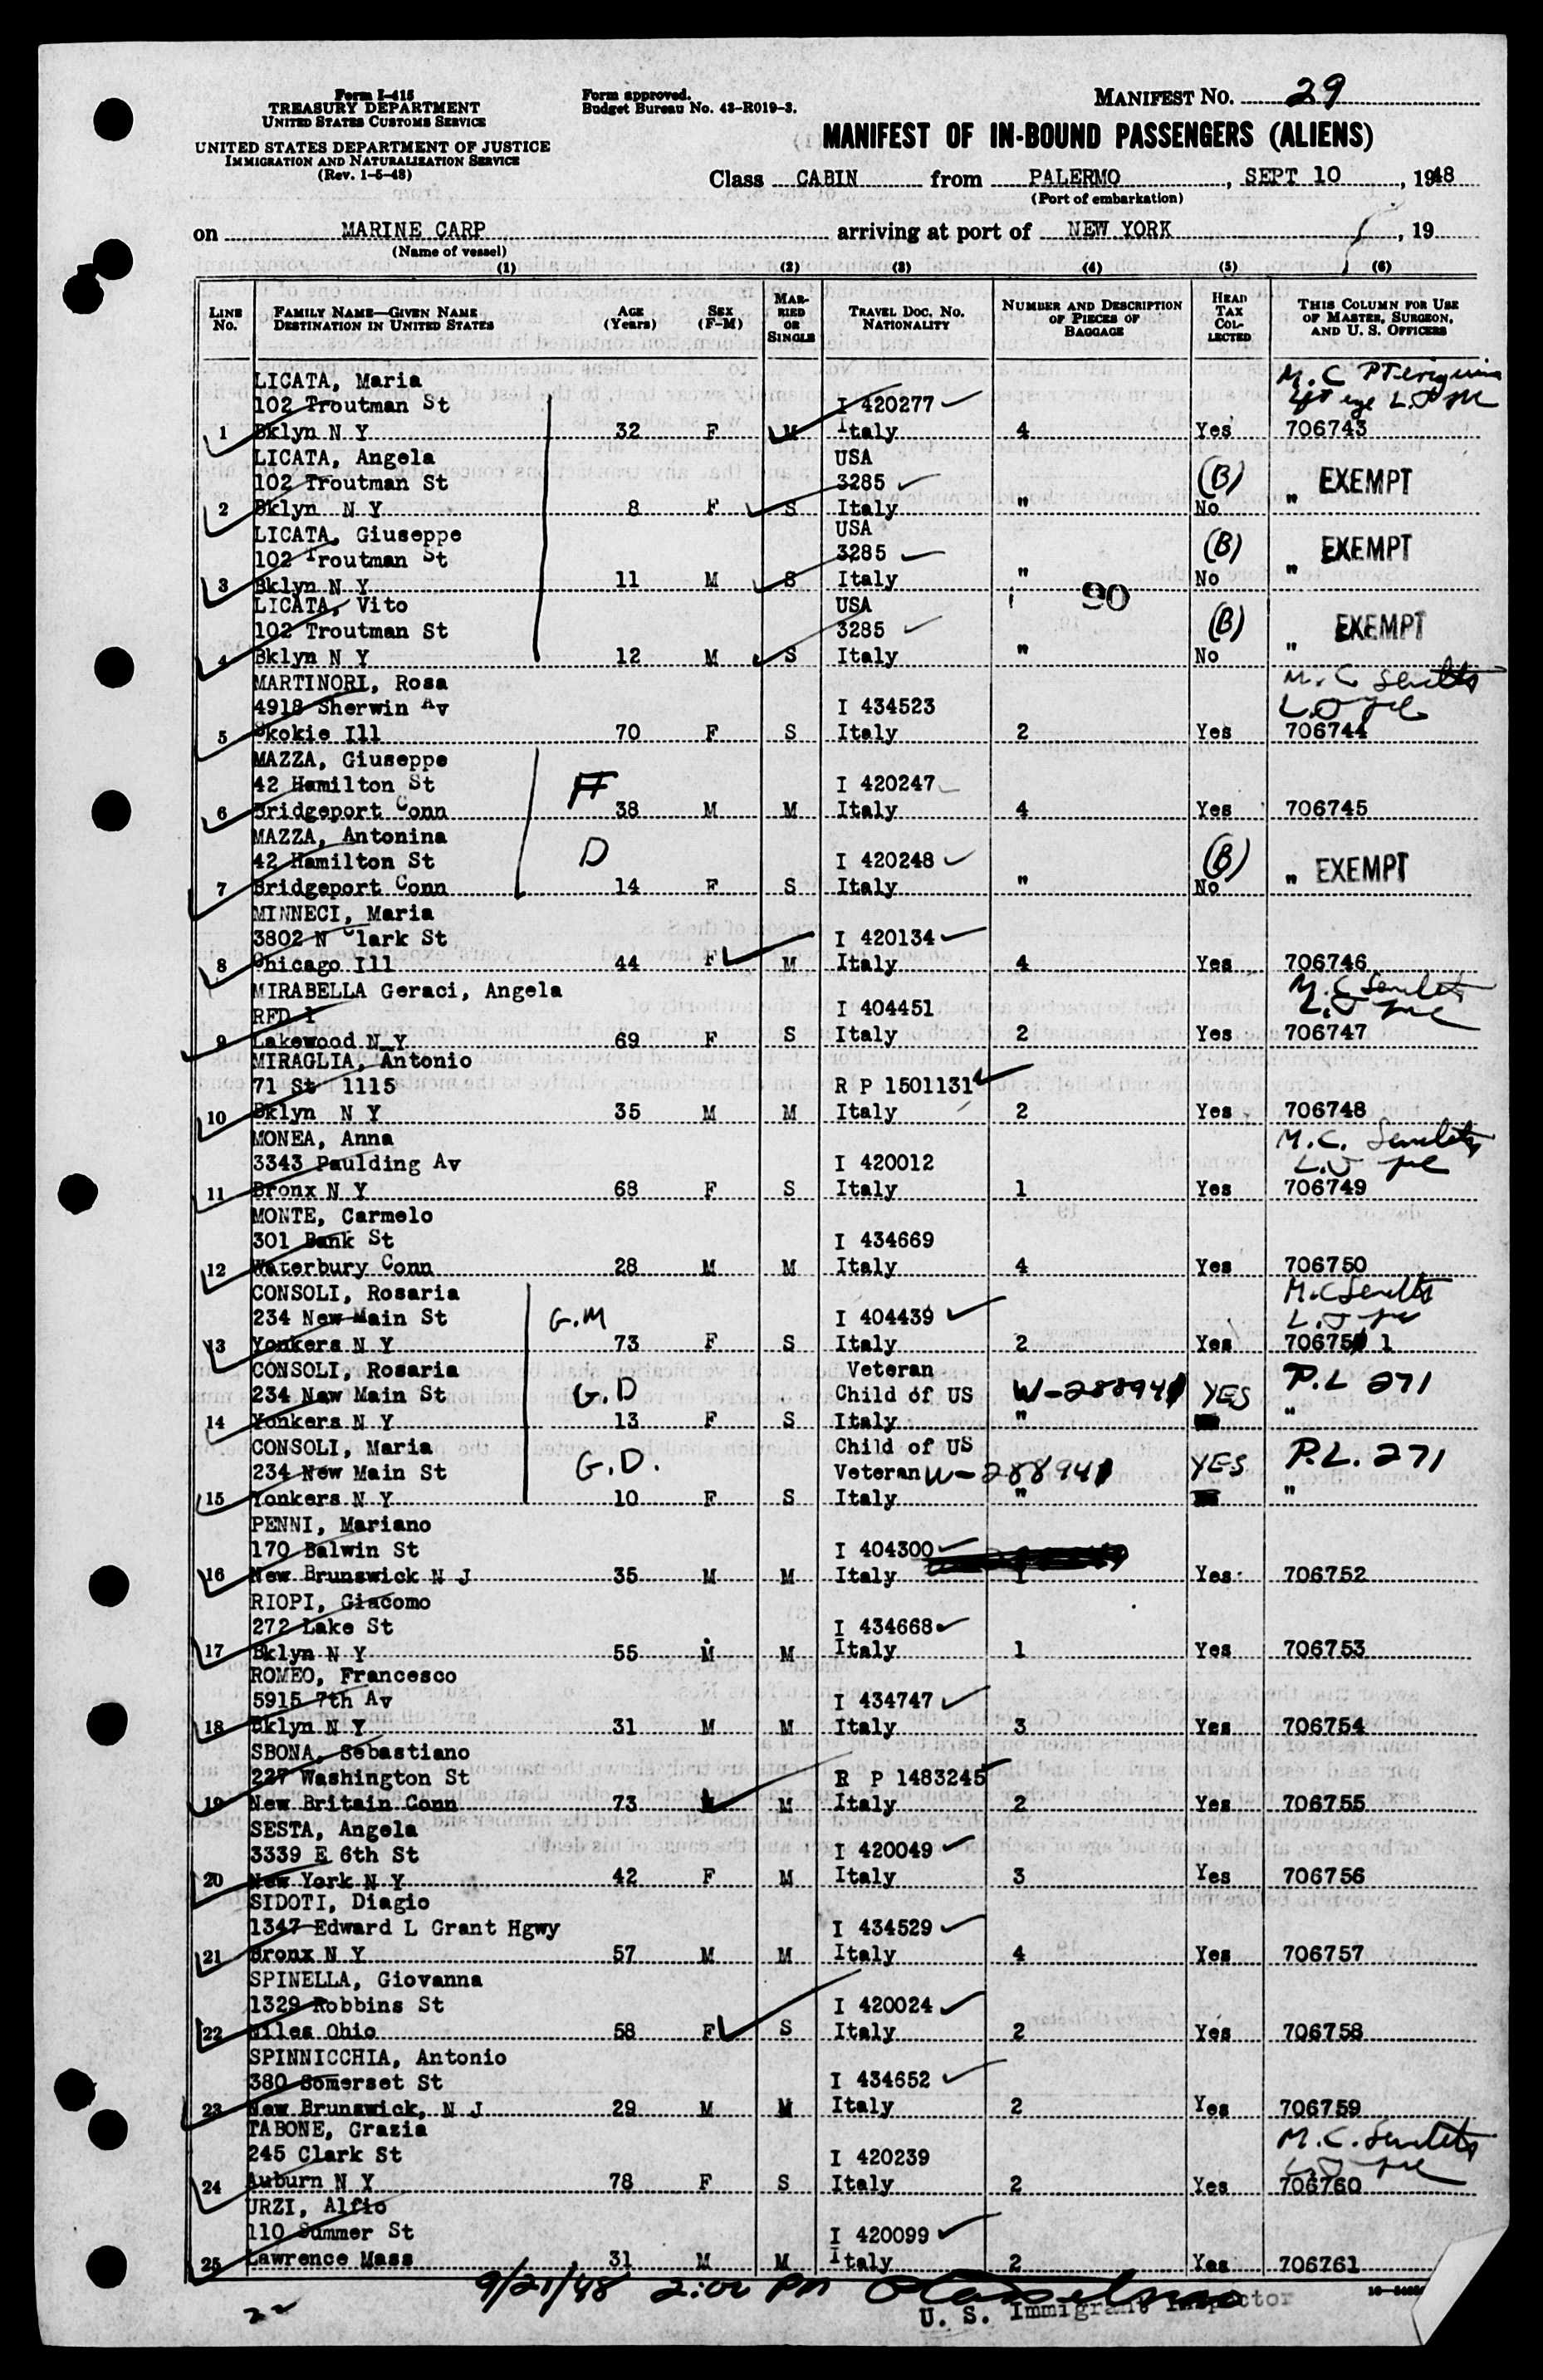 Form I-415
TREASURY DEPARTMENT
UNITED STATES CUSTOMS SERVICE
UNITED STATES DEPARTMENT OF JUSTICE
IMMIGRATION AND NATURALIZATION SERVICE
(Rev. 1-5-48)
Form approved.
Budget Bureau No. 43-R019-3.
MANIFEST NO. 29
MANIFEST OF IN-BOUND PASSENGERS (ALIENS)
Class CABIN from PALERMO, SEPT 10, 1948
(Port of embarkation)
on MARINE CARP arriving at port of NEW YORK, 19
(Name of vessel)
(1) (2) (3) (4) (5) (6)
LINE No. FAMILY NAME—GIVEN NAME DESTINATION IN UNITED STATES AGE (Years) SEX (F-M) MARRIED OR SINGLE TRAVEL DOC. NO. NATIONALITY NUMBER AND DESCRIPTION OF PIECES OF BAGGAGE HEAD TAX COLLECTED THIS COLUMN FOR USE OF MASTER, SURGEON, AND U. S. OFFICERS
LICATA, Maria M.C.
102 Troutman St I 420277 eye
1 Bklyn N Y 32 F M Italy 4 Yes 706743
LICATA, Angela USA
102 Troutman St 3285 (B) EXEMPT
2 Bklyn N Y 8 F S Italy " No "
LICATA, Giuseppe USA
102 Troutman St 3285 (B) EXEMPT
3 Bklyn N Y 11 M S Italy " No "
90
LICATA, Vito USA
102 Troutman St 3285 (B) EXEMPT
4 Bklyn N Y 12 M S Italy " No "
MARTINORI, Rosa M.C.
4918 Sherwin Av I 434523
5 Skokie Ill 70 F S Italy 2 Yes 706744
MAZZA, Giuseppe
42 Hamilton St F I 420247
6 Bridgeport Conn 38 M M Italy 4 Yes 706745
MAZZA, Antonina
42 Hamilton St D I 420248 (B) EXEMPT
7 Bridgeport Conn 14 F S Italy " No "
MINNECI, Maria
3802 N Clark St I 420134
8 Chicago Ill 44 F M Italy 4 Yes 706746
MIRABELLA Geraci, Angela M.C.
RFD 1 I 404451
9 Lakewood N Y 69 F S Italy 2 Yes 706747
MIRAGLIA, Antonio
71 St 1115 R P 1501131
10 Bklyn N Y 35 M M Italy 2 Yes 706748
MONEA, Anna M.C.
3343 Paulding Av I 420012
11 Bronx N Y 68 F S Italy 1 Yes 706749
MONTE, Carmelo
301 Bank St I 434669
12 Waterbury Conn 28 M M Italy 4 Yes 706750
CONSOLI, Rosaria M.C.
234 New Main St G.M I 404439
13 Yonkers N Y 73 F S Italy 2 Yes 70675 1
CONSOLI, Rosaria Veteran
234 New Main St G.D Child of US W-288941 YES P.L 271
14 Yonkers N Y 13 F S Italy " "
CONSOLI, Maria Child of US
234 New Main St G.D. Veteran W-288941 YES P.L. 271
15 Yonkers N Y 10 F S Italy " "
PENNI, Mariano
170 Balwin St I 404300
16 New Brunswick N J 35 M M Italy 1 Yes 706752
RIOPI, Giacomo
272 Lake St I 434668
17 Bklyn N Y 55 M M Italy 1 Yes 706753
ROMEO, Francesco
5915 7th Av I 434747
18 Bklyn N Y 31 M M Italy 3 Yes 706754
SBONA, Sebastiano
227 Washington St R P 1483245
19 New Britain Conn 73 M Italy 2 Yes 706755
SESTA, Angela
3339 E 6th St I 420049
20 New York N Y 42 F M Italy 3 Yes 706756
SIDOTI, Diagio
1347 Edward L Grant Hgwy I 434529
21 Bronx N Y 57 M M Italy 4 Yes 706757
SPINELLA, Giovanna
1329 Robbins St I 420024
22 Niles Ohio 58 F S Italy 2 Yes 706758
SPINNICCHIA, Antonio
380 Somerset St I 434652
23 New Brunswick, N J 29 M M Italy 2 Yes 706759
TABONE, Grazia M.C.
245 Clark St I 420239
24 Auburn N Y 78 F S Italy 2 Yes 706760
URZI, Alfio
110 Summer St I 420099
25 Lawrence Mass 31 M M Italy 2 Yes 706761
9/21/48 2:00 PM
U. S. Immigrant Inspector